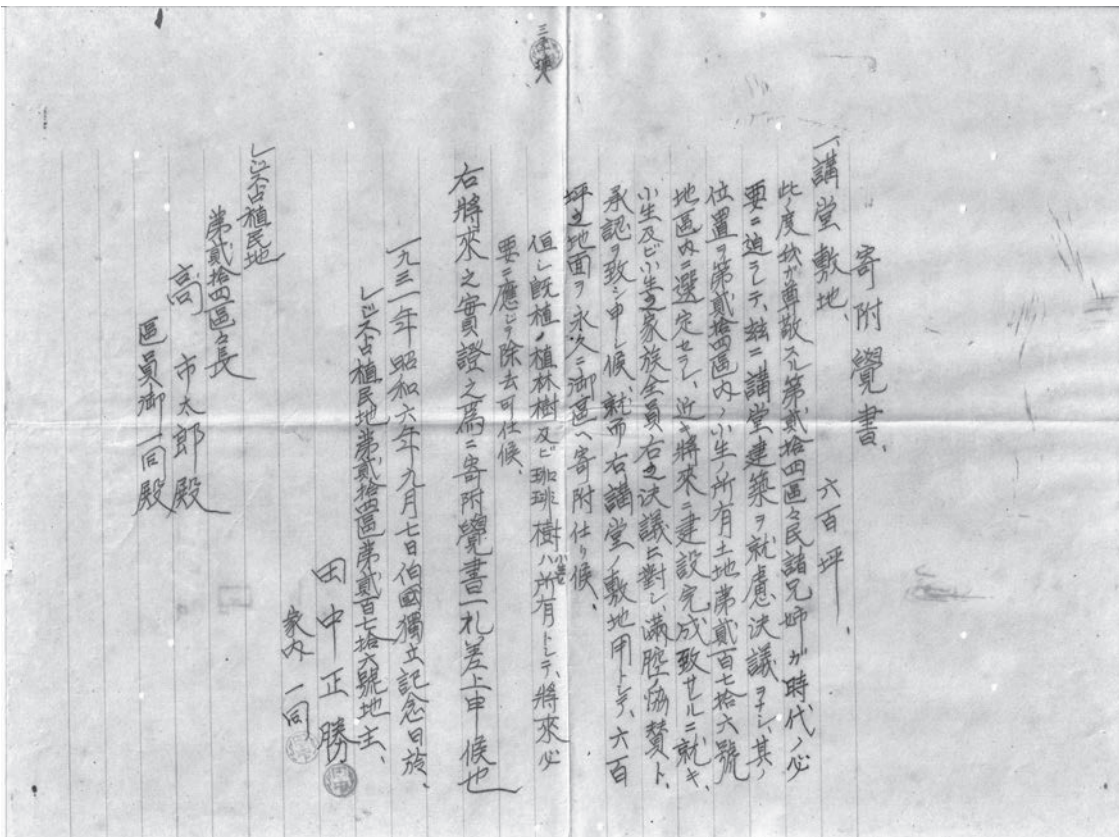 寄附覺書、
一、講堂敷地、　六百坪、
此ノ度我ガ尊敬スル第貳拾四區々民諸兄姉ガ時代ノ必
要ニ迫ラレテ、玆ニ講堂建築ヲ就慮決議ヲナシ、其ノ
位置ヲ第貳拾四區内ノ小生ノ所有土地第貳百七拾六號
地區内ニ選定セラレ、近キ將來ニ建設完成致サルニ就キ、
小生及ビ小生之家族全員右之決議ニ對シ、滿腔ノ協賛ト、
承認ヲ致シ申シ候、就而右講堂ノ敷地用トシテ、六百
坪之地面ヲ永久ニ御區ヘ寄附仕リ候、
但シ既植ノ植林樹及ビ珈琲樹ハ小生所有トシテ、將來必
要ニ應ジ除去可仕候、
右將來之實證之爲ニ寄附覺書一札差上申候也
一九三一年昭和六年九月七日伯國獨立記念日於、
レジストロ植民地第貳拾四區第貳百七拾六號地主、
田中正勝
家内一同
レジストロ植民地
第貳拾四區々長
高市太郎殿
區員御一同殿